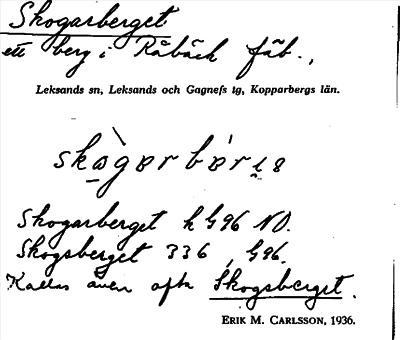 Skogarberget
ett berg i Råbäck fäb.,
Leksands sn, Leksands och Gagnefs tg, Kopparbergs län.
Skogarberget h G96 NO.
Skogsberget 336, G96.
Kallas även ofta Skogsberget.
ERIK M. CARLSSON, 1936.